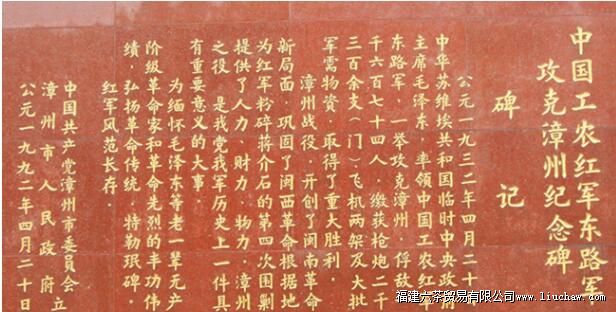 中国工农红军东路军
攻克漳州纪念碑
碑记
公元一九三二年四月二十日
中华苏维埃共和国临时中央政府
主席毛泽东，率领中国工农红军
东路军，一举攻克漳州，俘敌一
千六百七十四人，缴获枪炮二千
三百余支（门）飞机两架及大批
军需物资，取得了重大胜利。
漳州战役，开创了闽南革命
新局面，巩固了闽西革命根据地
为红军粉碎蒋介石的第四次围剿
提供了人力、财力、物力。漳州
之役，是我党我军历史上一件具
有重要意义的大事。
为缅怀毛泽东等老一辈无产
阶级革命家和革命先烈的丰功伟
绩，弘扬革命传统，特勒珉碑，
红军风范长存。
中国共产党漳州市委员会立
漳州市人民政府
公元一九九二年四月二十日
福建六茶贸易有限公司www.liuchaw.com